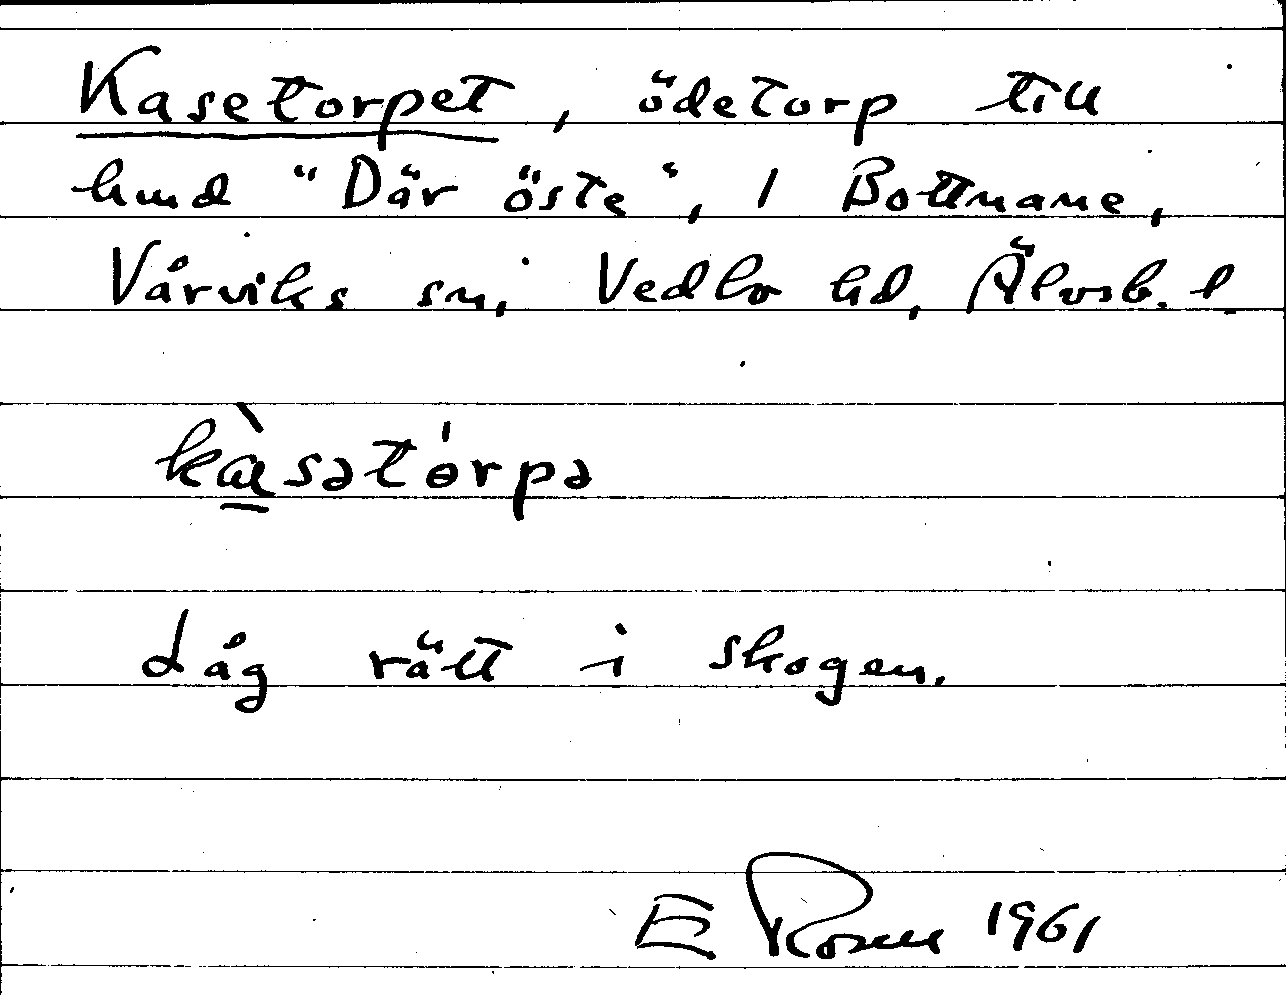 Kasetorpet, ödetorp till
hmd "Där öste", 1 Bottnane,
Vårviks sn, Vedbo hd, Älvsb. l.
kàsətórpə
Låg rätt i skogen.
E Rosell 1961